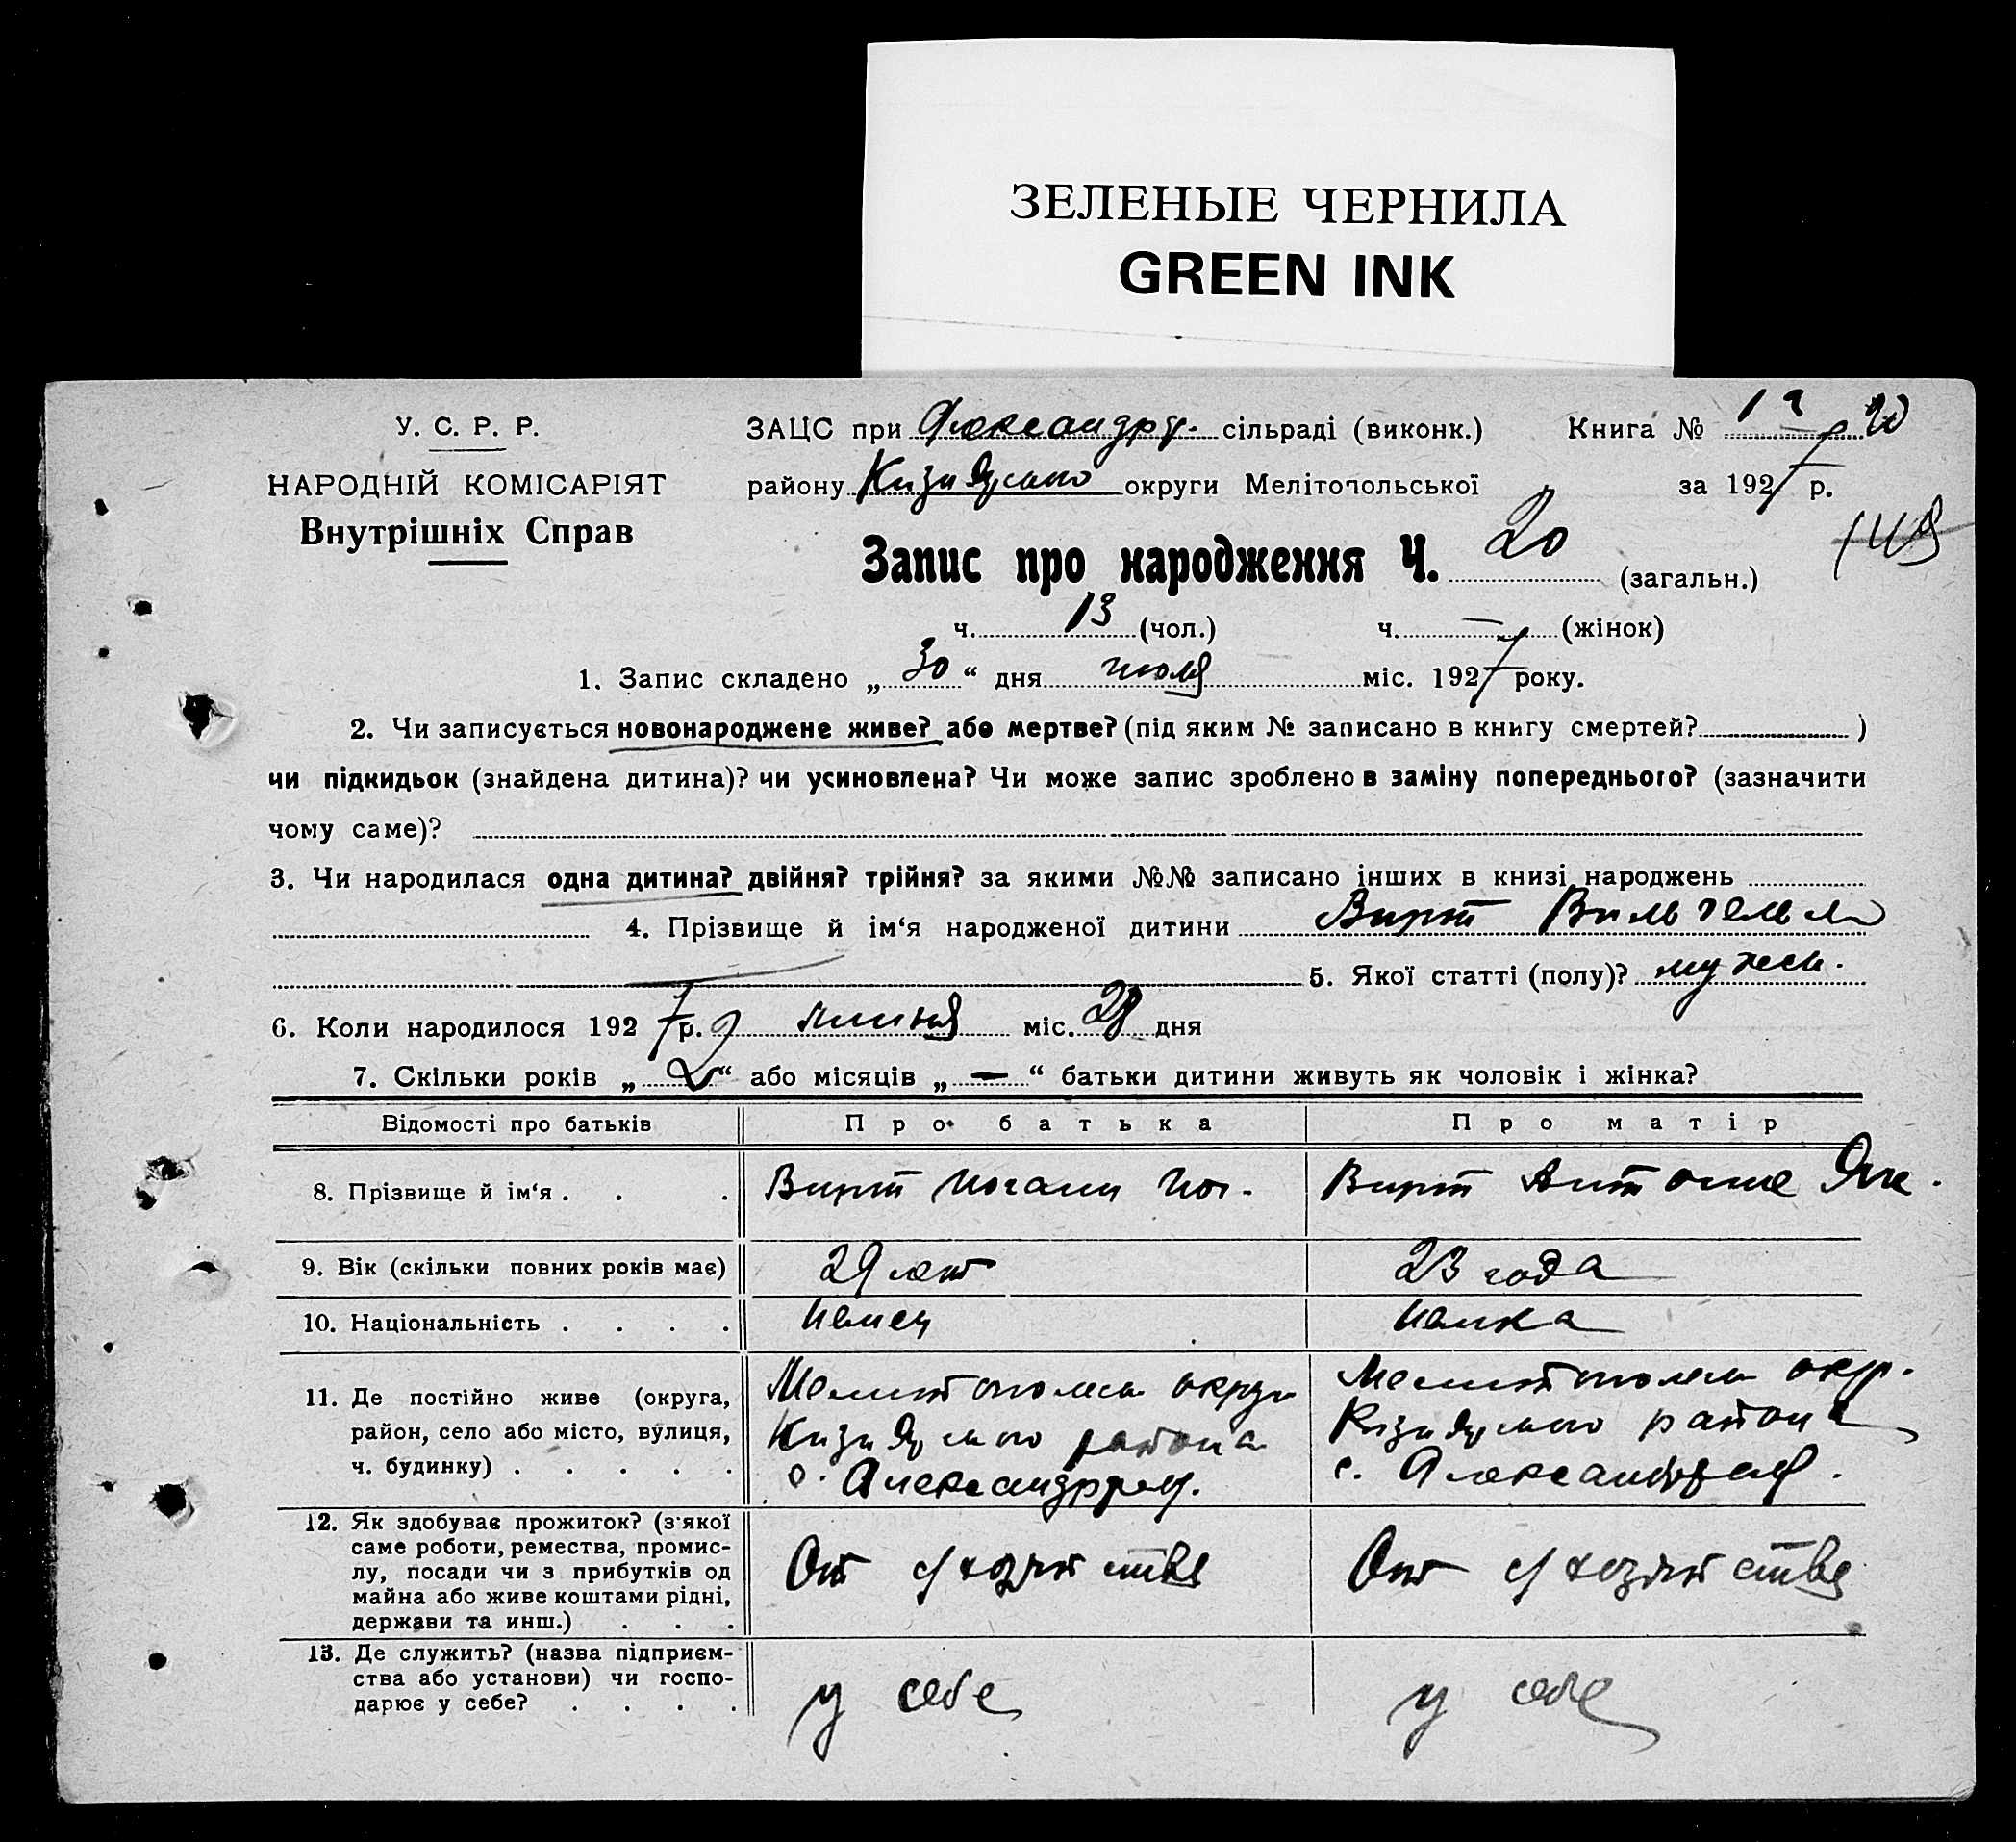 ЗЕЛЕНЫЕ ЧЕРНИЛА
GREEN INK
У. С. Р. Р.
НАРОДНІЙ КОМІСАРІЯТ
Внутрішніх Справ
ЗАЦС при Александр. сільраді (виконк.) Книга №
району округи Мелітопольської за 1927 р.
Запис про народження Ч. 20 (загальн.)
ч. 13 (чол.) ч. — (жінок)
1. Запис складено „ 30 “ дня июля міс. 1927 року.
2. Чи записується новонароджене живе? або мертве? (під яким № записано в книгу смертей? )
чи підкидьок (знайдена дитина)? чи усиновлена? Чи може запис зроблено в заміну попереднього? (зазначити
чому саме)?
3. Чи народилася одна дитина? двійня? трійня? за якими №№ записано інших в книзі народжень
4. Прізвище й ім‘я народженої дитини Вирт Вильгельм
5. Якої статті (полу)? мужск.
6. Коли народилося 1927 р. липня міс. 28 дня
7. Скільки років „ 2 “ або місяців „ — “ батьки дитини живуть як чоловік і жінка?
Відомості про батьків Про батька Про матір
8. Прізвище й ім‘я . . . Вирт Иоганн Иог. Вирт Антоние Як.
9. Вік (скільки повних років має) 29 лет 23 года
10. Національність . . . . немец немка
11. Де постійно живе (округа,
район, село або місто, вулиця,
ч. будинку) . . . . .
Мелитопольск округи
района
с. Александрфельд.
Мелитопольск окр.
района
с. Александрфельд.
12. Як здобуває прожиток? (з'якої
саме роботи, ремества, промис-
лу, посади чи з прибутків од
майна або живе коштами рідні,
держави та инш.) . . .
От с/хозяйства
От с/хозяйства
13. Де служить? (назва підприєм-
ства або установи) чи госпо-
дарює у себе? . . . .
у себе
у себе